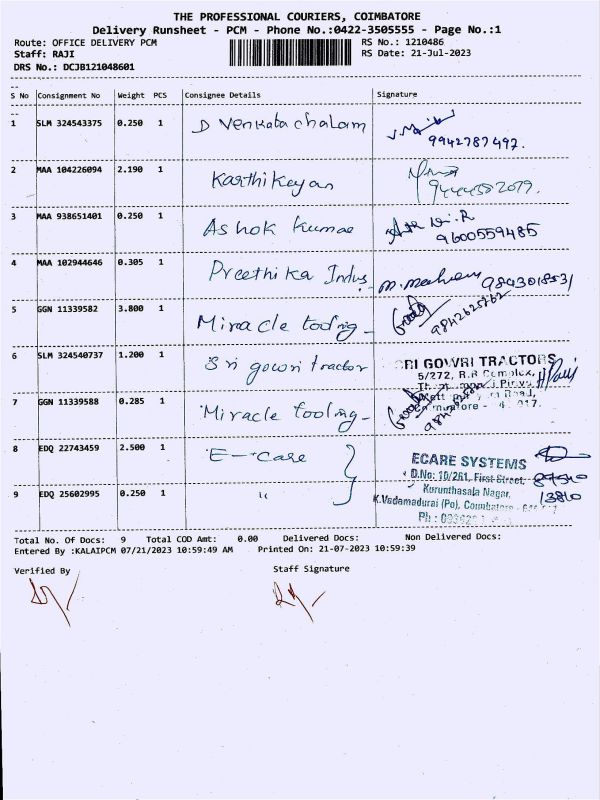 THE PROFESSIONAL COURIERS, COIMBATORE
Delivery Runsheet - PCM - Phone No.:0422-3505555 - Page No.:1
Route: OFFICE DELIVERY PCM RS No.: 1210486
Staff: RAJI RS Date: 21-Jul-2023
DRS No.: DCJB121048601
S No Consignment No Weight PCS Consignee Details Signature
1 SLM 324543375 0.250 1 D Venkata chalam
9942787492.
2 MAA 104226094 2.190 1 Karthikeyan
9444552079.
3 MAA 938651401 0.250 1 Ashok Kumar
9600559485
4 MAA 102944646 0.305 1 Preethika Indus.
5 GGN 11339582 3.800 1 Miracle tooling -
9842625762
6 SLM 324540737 1.200 1 Sri gowri tractor
SRI GOWRI TRACTORS
5/272, R.R Complex,
7 GGN 11339588 0.285 1 Miracle tooling -
Road,
8 EDQ 22743459 2.500 1 E-care
ECARE SYSTEMS
D.No: 10/261, First Street,
Kurunthasala Nagar,
9 EDQ 25602995 0.250 1 "
13810
K.Vadamadurai (Po), Coimbatore -
Ph :
Total No. Of Docs: 9 Total COD Amt: 0.00 Delivered Docs: Non Delivered Docs:
Entered By :KALAIPCM 07/21/2023 10:59:49 AM Printed On: 21-07-2023 10:59:39
Verified By Staff Signature